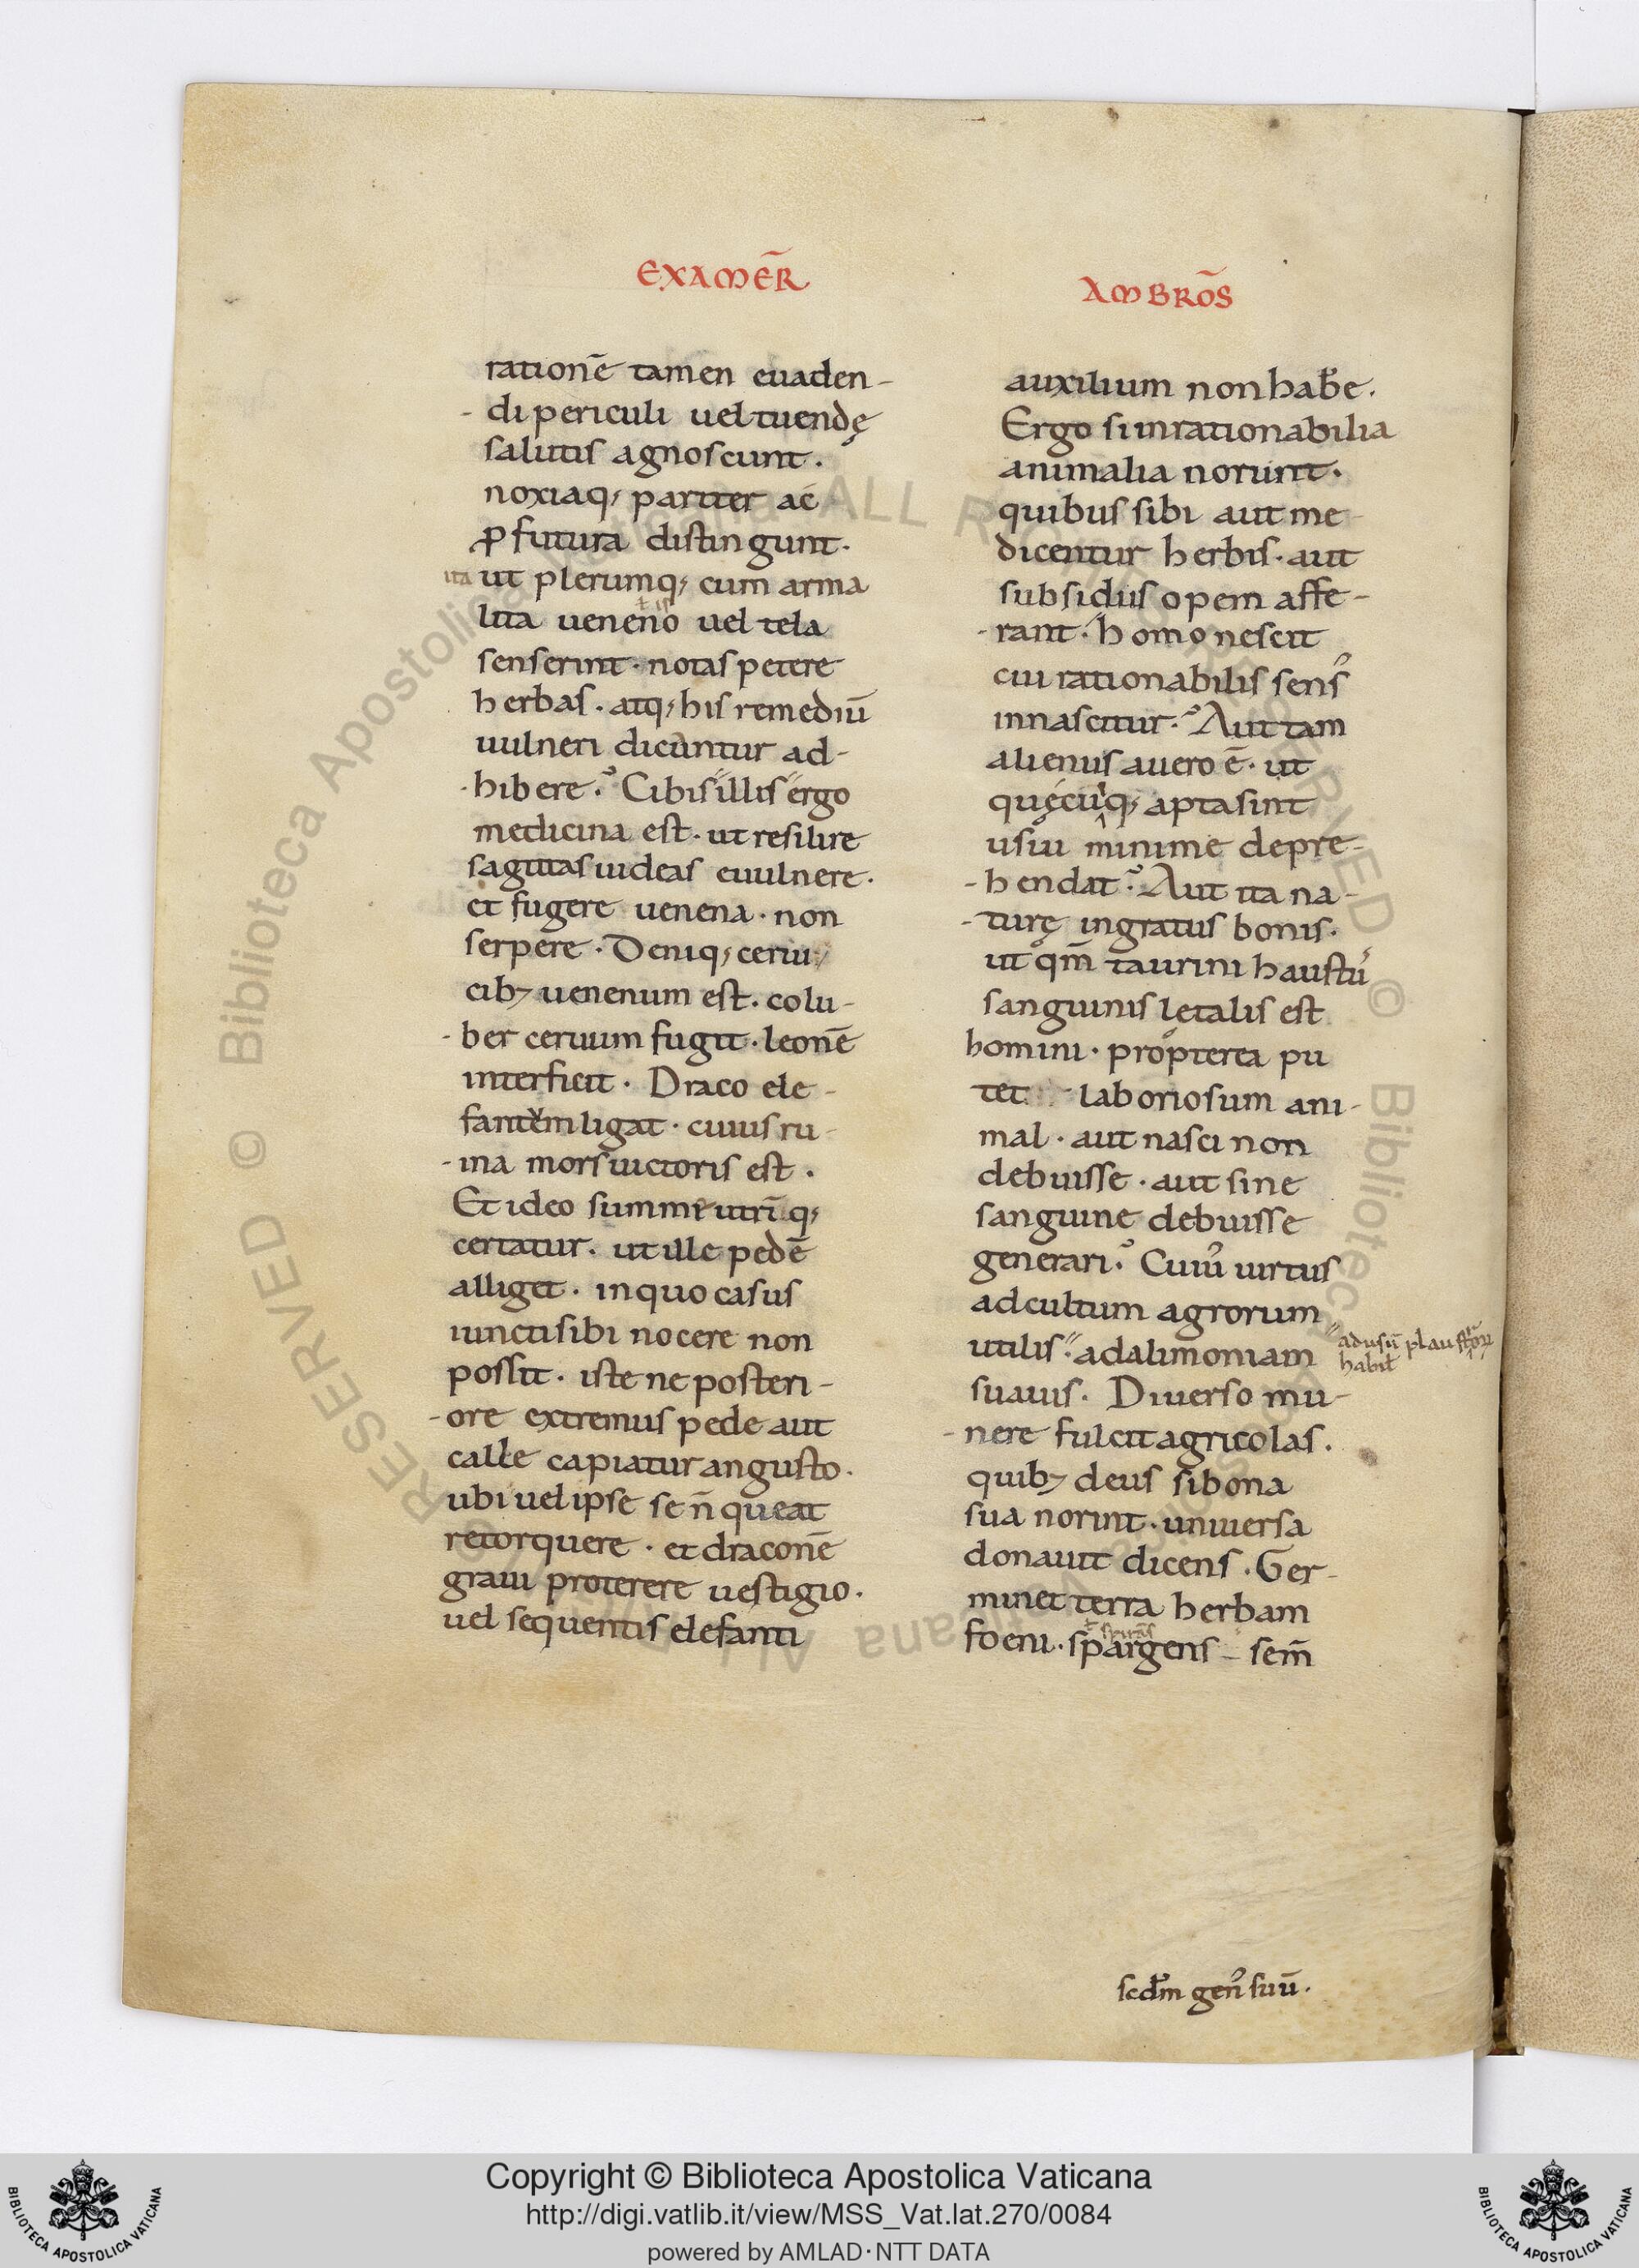 EXAMER̄
rationē tamen euaden-
-di periculi uel tuendę
salutis agnoscunt.
noxiaq; pariter ac
ꝓfutura distingunt.
ita ut plerumq; cum arma
lita ueneno uel tela
ł is
senserint. notas petere
herbas. atq; his remediū
uulneri dicuntur ad-
-hibere? Cibis illis ergo
medicina est. ut resilire
sagittas uideas euulnere.
et fugere uenena. non
serpere. Deniq; cerui
cib; uenenum est. colu-
-ber ceruum fugit. leonē
interficit. Draco ele-
fantem ligat. cuius ru-
-ina mors uictoris est.
Et ideo summi utrīq;
certatur. ut ille pedē
alliget. inquo casus
iuncti sibi nocere non
possit. iste ne posteri-
-ore extremus pede aut
calle capiatur angusto.
ubi uel ipse se n̄ queat
retorquere. et draconē
graui proterere uestigio.
uel sequentis elefanti
AMBROS̄
auxilium non habe.
Ergo si inrationabilia
animalia norunt.
quibus sibi aut me
dicentur herbis. aut
subsidiis opem affe-
-rant. homo nescit
cui rationabilis sens᾽
innascitur? Aut tam
alienus auero ē. ut
quęcūq; apta sint
usui minime depre-
-hendat? Aut ita na-
-turę ingratus bonis.
ut qm̄ taurini haustu᾽
sanguinis lętalis est
homini. propterea pu
tet laboriosum ani-
mal. aut nasci non
debuisse. aut sine
sanguine debuisse
generari? Cui᾽ uirtus
adcultum agrorum
utilis. adalimoniam
adusū plaustrorꝝ
habił
suauis. Diuerso mu-
-nere fulcit agricolas.
quib; deus si bona
sua norint. uniuersa
donauit dicens. Ger-
minet terra herbam
foeni. spargens - sem̄
scdm gen᾽ suū.
Copyright © Biblioteca Apostolica Vaticana
http://digi.vatlib.it/view/MSS_Vat.lat.270/0084
powered by AMLAD·NTT DATA
BIBLIOTECA APOSTOLICA VATICANA
BIBLIOTECA APOSTOLICA VATICANA